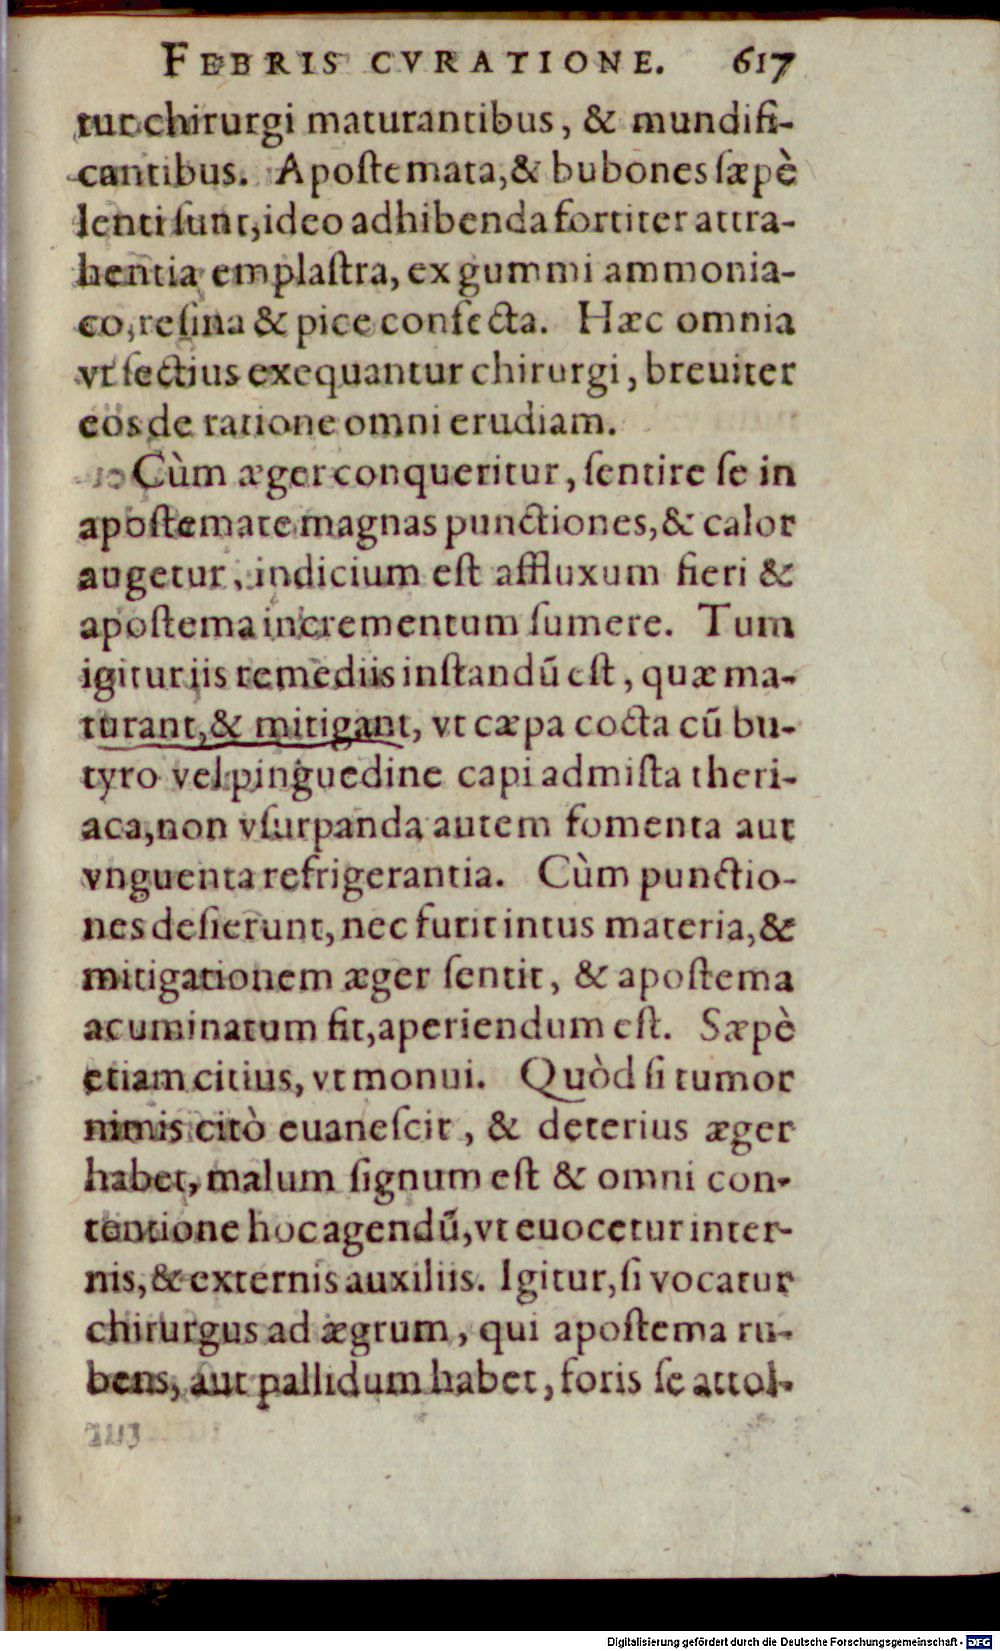 FEBRIS CVRATIONE. 617
tur chirurgi maturantibus, & mundifi-
cantibus. Apostemata, & bubones sæpè
lenti sunt, ideo adhibenda fortiter attra-
hentia emplastra, ex gummi ammonia-
co, resina & pice confecta. Hæc omnia
vt sectius exequantur chirurgi, breuiter
eos de ratione omni erudiam.
Cùm æger conqueritur, sentire se in
apostemate magnas punctiones, & calor
augetur, indicium est affluxum fieri &
apostema incrementum sumere. Tum
igitur iis remediis instandũ est, quæ ma-
turant, & mitigant, vt cæpa cocta cũ bu-
tyro vel pinguedine capi admista theri-
aca, non vsurpanda autem fomenta aut
vnguenta refrigerantia. Cùm punctio-
nes desierunt, nec furit intus materia, &
mitigationem æger sentit, & apostema
acuminatum fit, aperiendum est. Sæpè
etiam citius, vt monui. Quòd si tumor
nimis citò euanescit, & deterius æger
habet, malum signum est & omni con-
tentione hoc agendũ, vt euocetur inter-
nis, & externis auxiliis. Igitur, si vocatur
chirurgus ad ægrum, qui apostema ru-
bens, aut pallidum habet, foris se attol-
Digitalisierung gefördert durch die Deutsche Forschungsgemeinschaft - DFG